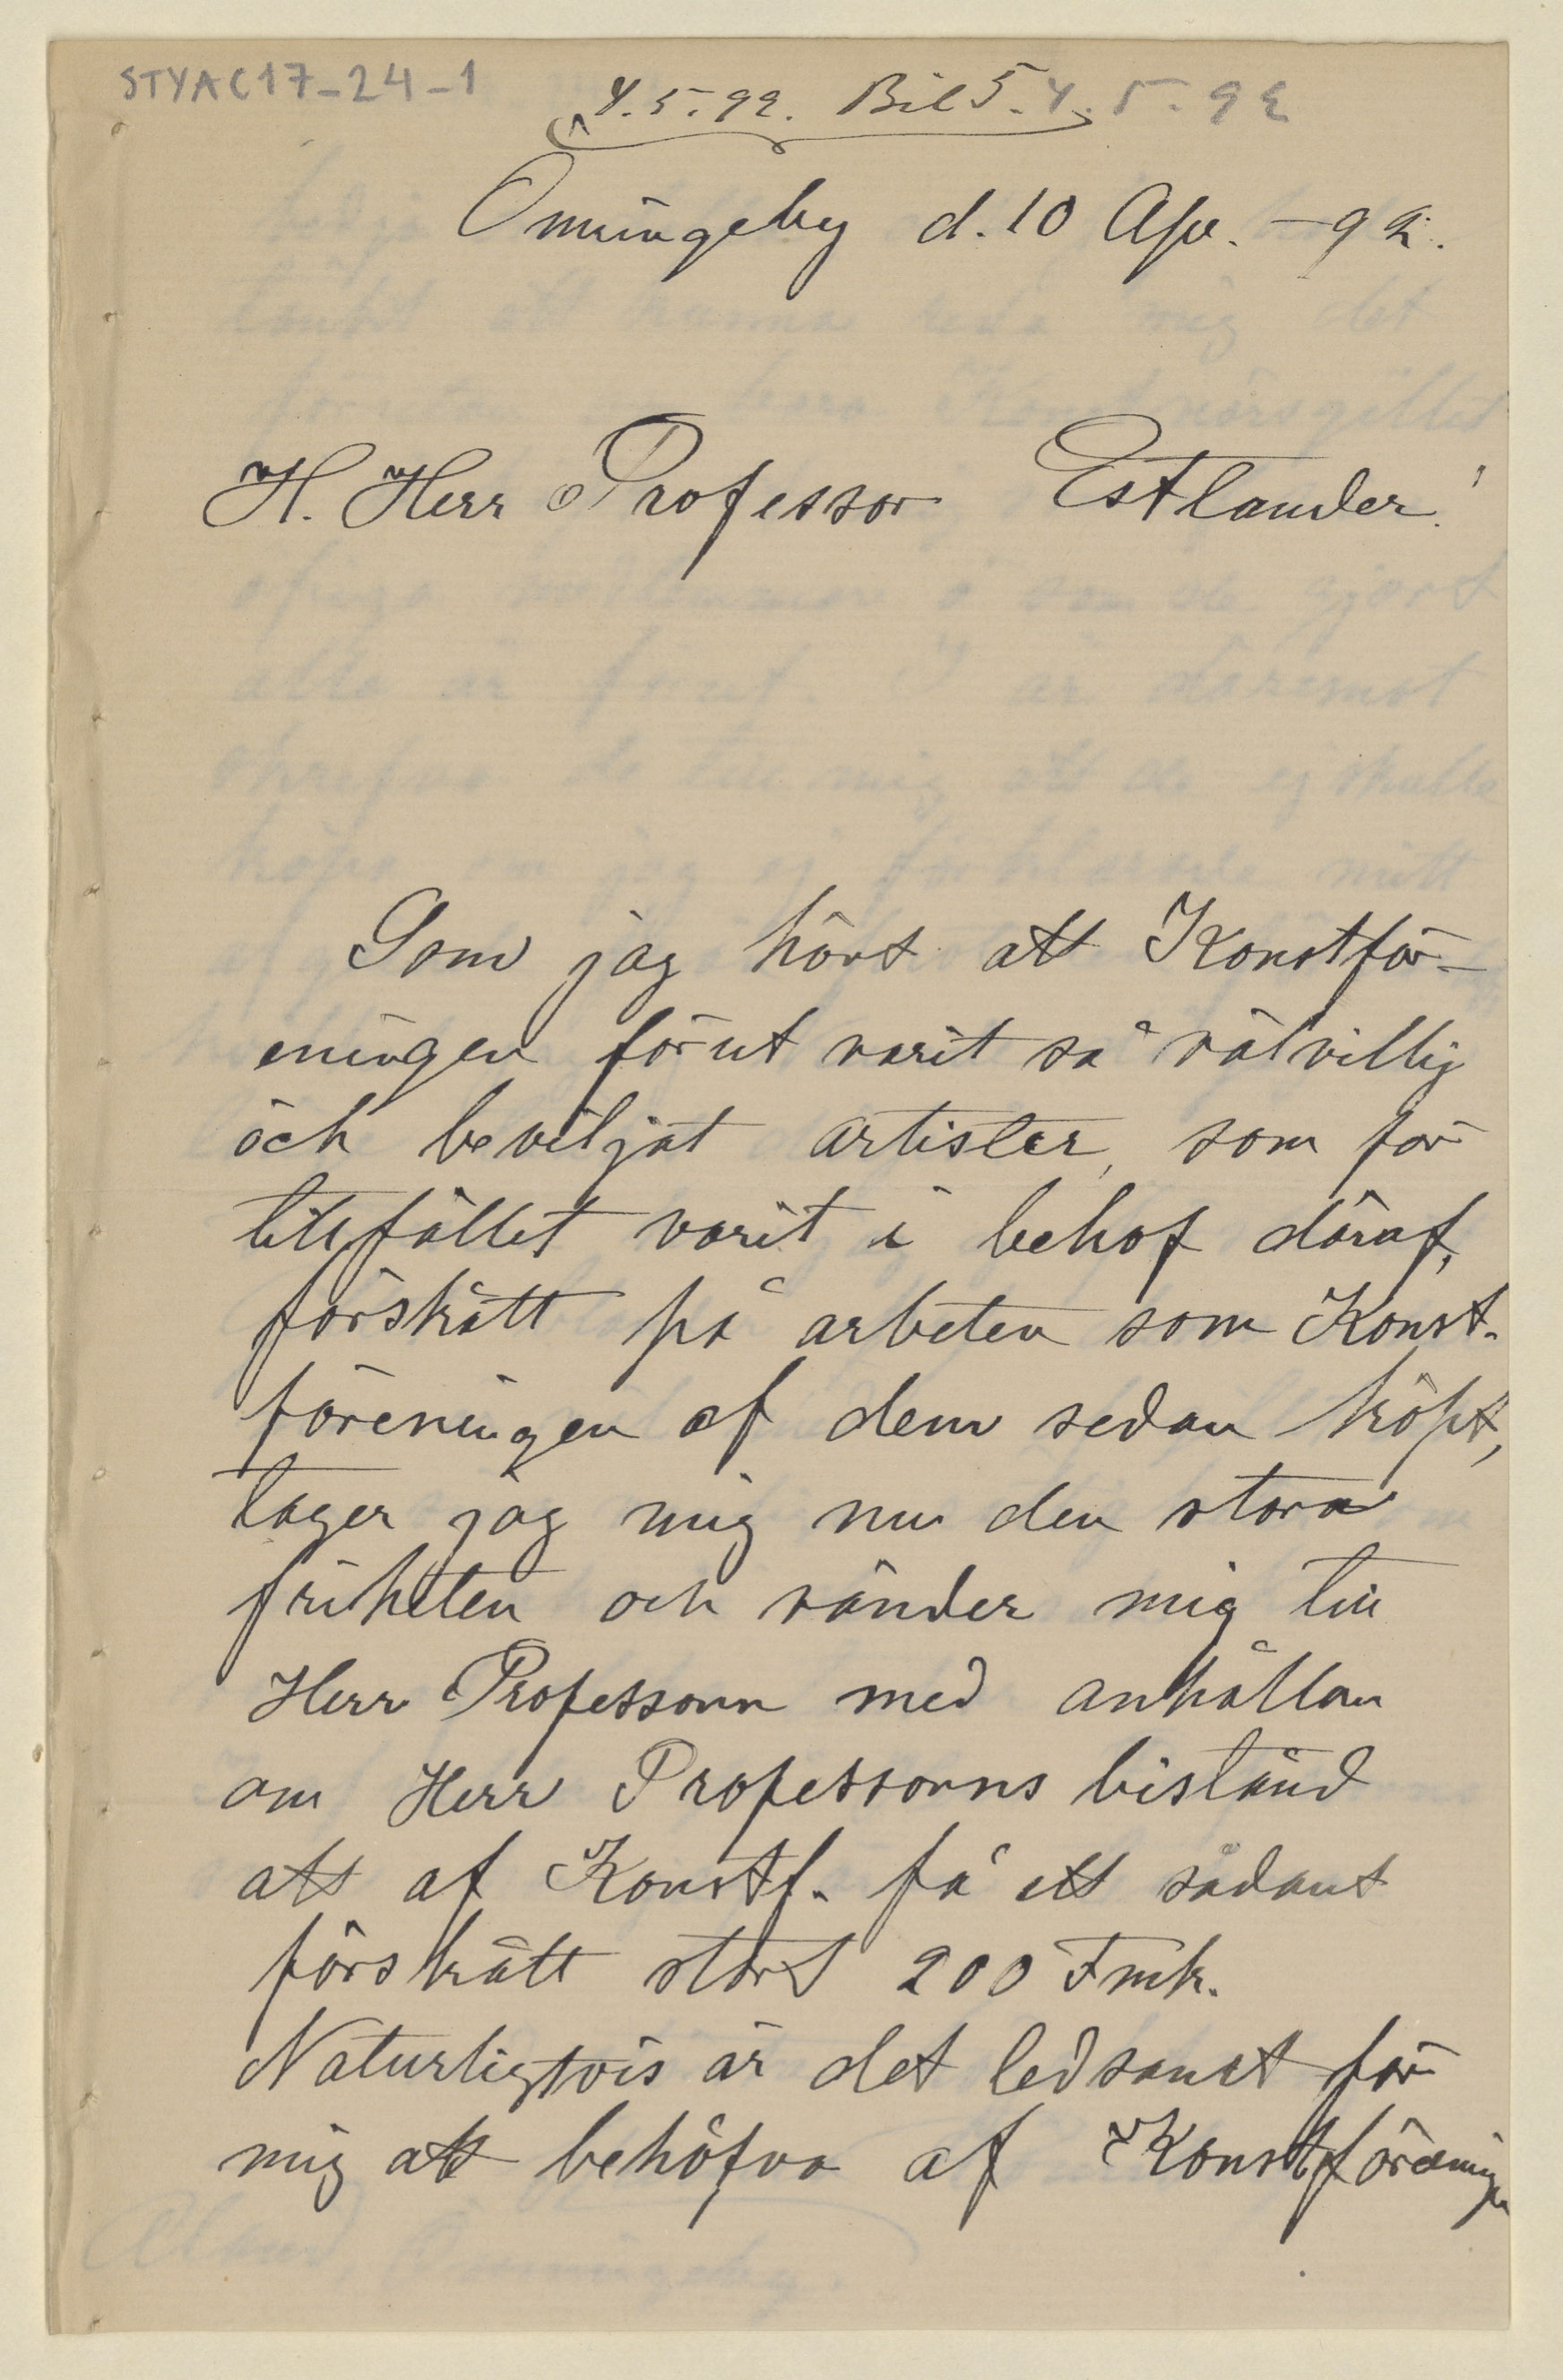 STYAC17-24-1
4.5.92. Bil 5. 4.5.92
Önningeby d. 10 Apr. -92.
H. Herr Professor Estlander!
Som jag hört att Konstför-
eningen förut varit så välvillig
och beviljat artister, som för
tillfället varit i behof däraf,
förskått på arbeten som Konst-
föreningen af dem sedan köpt,
tager jag mig nu den stora
friheten och vänder mig till
Herr Professorn med anhållan
om Herr Professorns bistånd
att af Konstf. få ett sådant
förskått stort 200 Fmk.
Naturligtvis är det ledsamt för
mig att behöfva af Konstföreningen